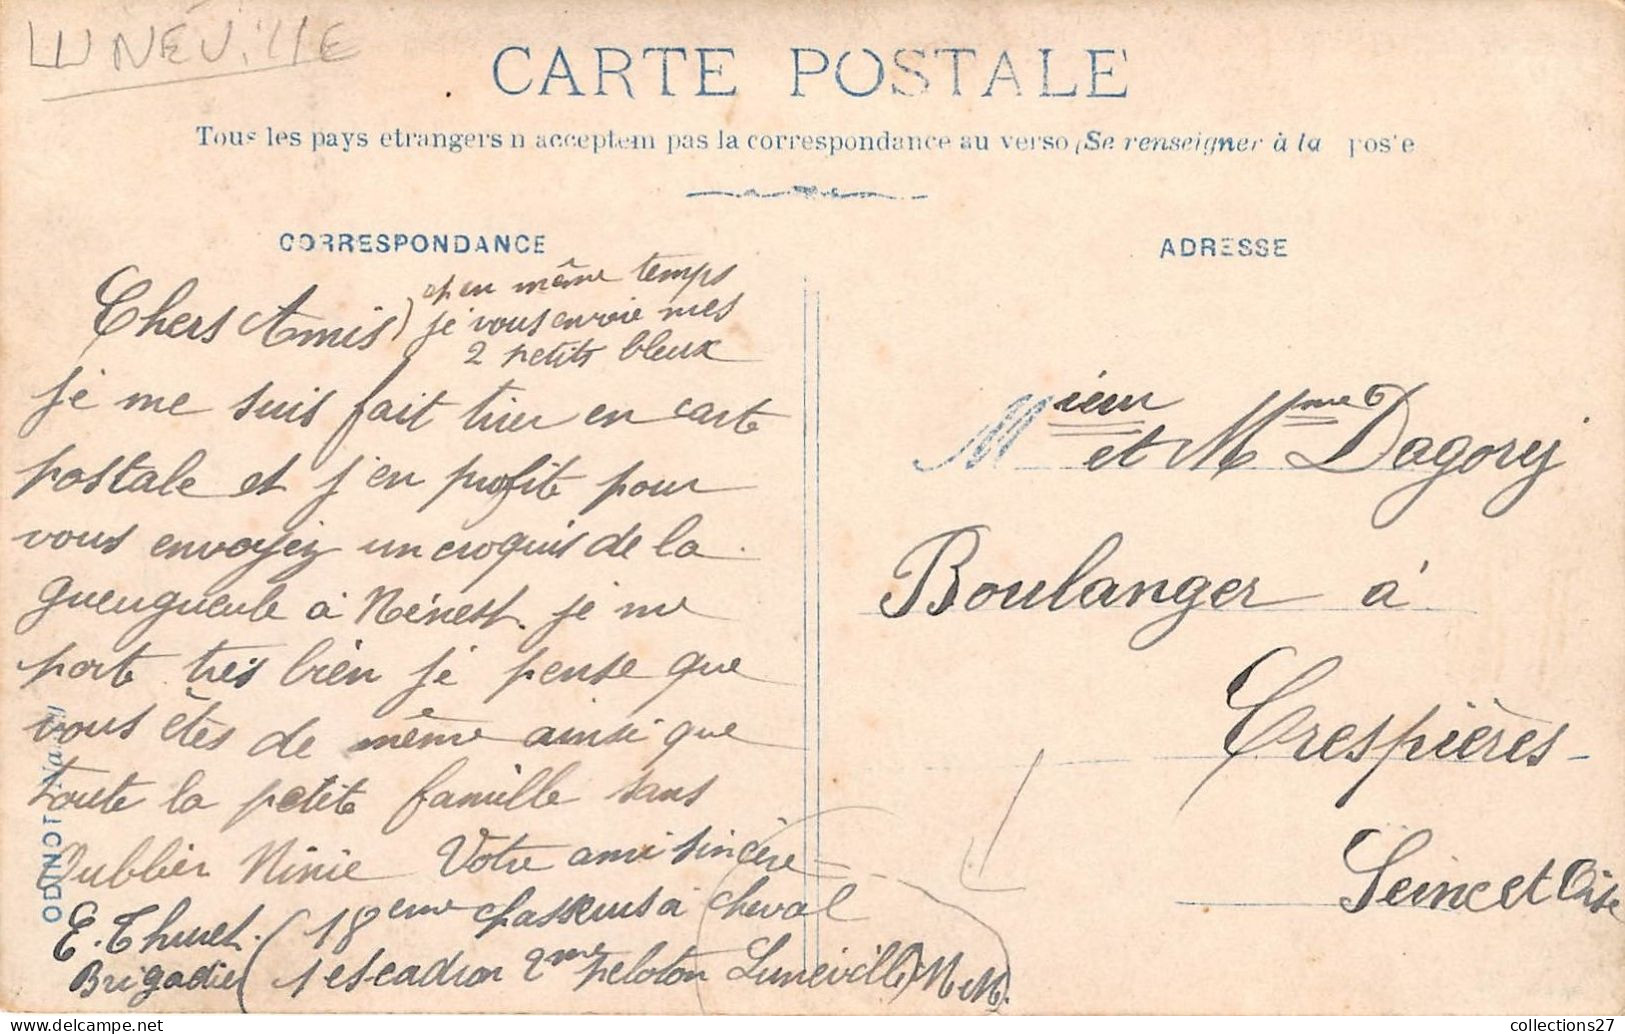 LUNÉVILLE
CARTE POSTALE
Tous les pays etrangers n acceptent pas la correspondance au verso (Se renseigner à la poste
CORRESPONDANCE
ADRESSE
Chers Amis
en même temps
je vous envoie mes
2 petits bleux
je me suis fait tirer en carte
postale et j'en profite pour
vous envoyez un croquis de la
gueugueule à Nénest. je me
porte très bien je pense que
vous êtes de même ainsi que
toute la petite famille sans
Oublier Ninie Votre ami sincère
E. Thuret. (18eme chasseurs à cheval
Brigadier 1 escadron 2me peloton Lunéville) M et M.
ODINOT Nancy
Mieur et Mme Dagory
Boulanger à
Crespières
Seine et Oise
collections27